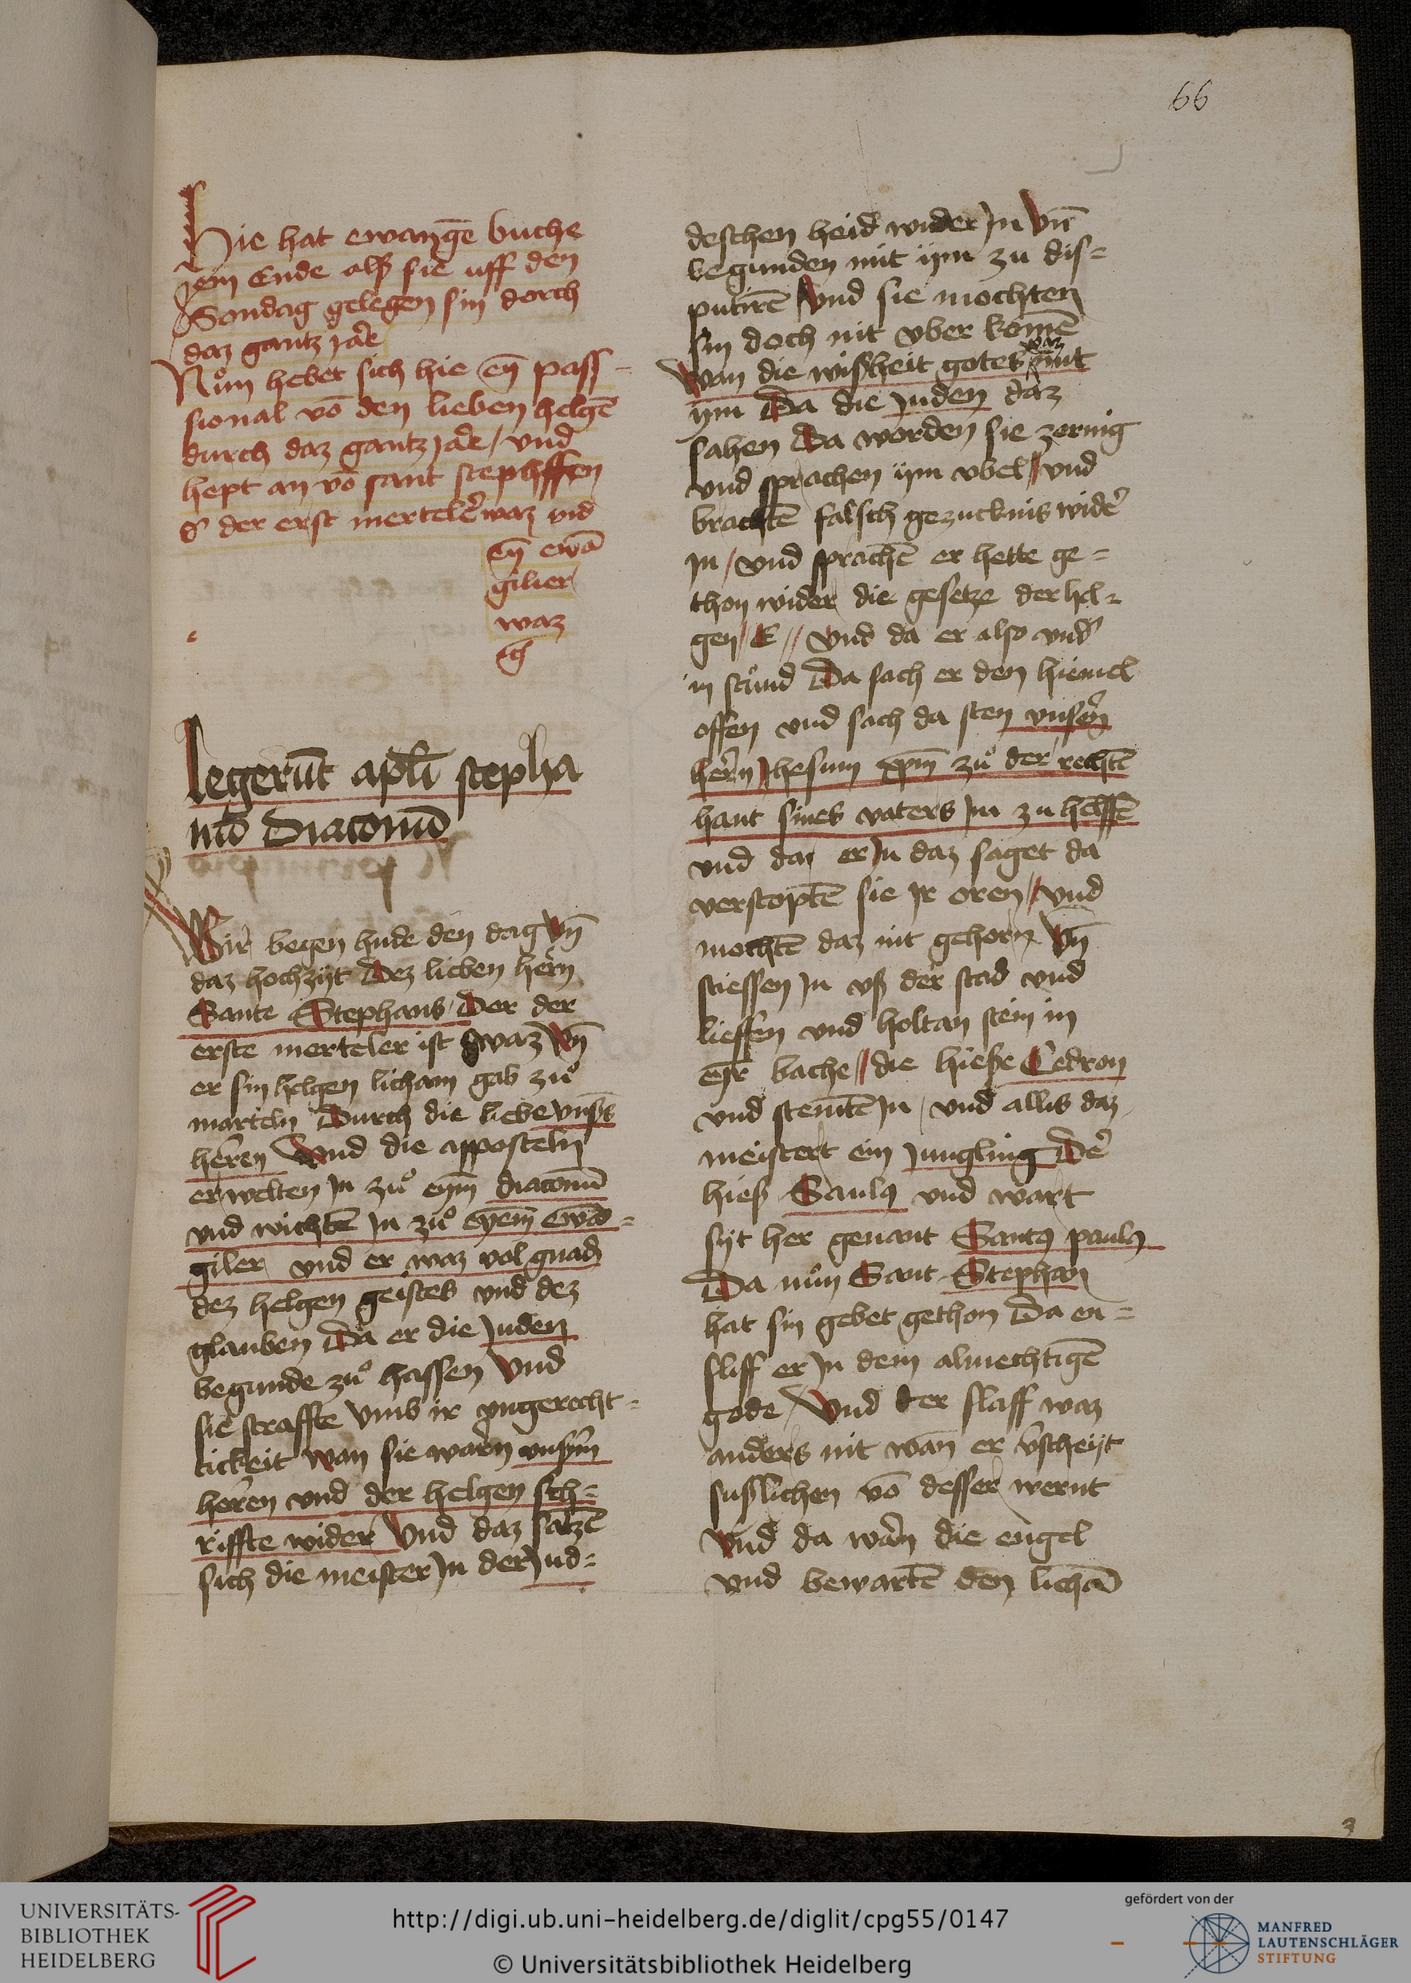 66
Hie hat ewangē buche
eyn Ende alß sie uff den
Sondag gelegen sin dorch
daz gantz jare
Nůn hebet sich hie eȳ pass
sional vō den lieben helgē
durch daz gantz jare / vnd
hept an vō sant stephffen
der erst mertelēr waz vnd
eȳ ewā
gilier
waz
legerūt apl̄i stepha
nū Diaconū
Wir began hude den dag vn̄
daz hochzyt dez lieben hern
Sante Stephans der der
erste merteler ist gwaz vn̄
er sin helgen licham gab zů
marteln Durch die liebe vnsers
herren Und die apposteln
erwelten jn zů eym diaconū
vnd wichtē jn zů eyem ewā-
giler vnd er waz vol gnad
dez helgen geistes vnd dez
glauben Da er die juden
begunde zů hassen Vnd
sie straffte vmb ir vngerecht-
tickeit wan sie warn vnsm̄
herren vnd der helgen sch-
riffte wider Vnd daz satzē
sich die meister jn der jud-
deschen heid wider jn vn̄
begunden mit ym zu dis-
putirē Vnd sie mochten
sin doch nit vber komē
waz
Wan die wißheit gotes mit
ym Da die juden daz
sahen Da worden sie zornig
vnd sprachen ym vbel // vnd
brachtē falsch gezucknis wider
jn / vnd sprachē er hette ge-
thon wider die gesetze der hel-
gen / E // Vnd da er also vnder
in stůnd Da sach er den hiemel
offen vnd sach da sten vnsern
hern Jhesum xp̄m zů der rechtē
hant sines vaters jm zu helffē
vnd da er jn daz saget da
verstoptē sie jr oren / vnd
mochtē daz nit gehorn Vn̄
stiessen jn vß der stad vnd
lieffen vnd holtan stein in
eyr bache // die hieße Cedron
vnd steintē jn / vnd allis daz
meistert ein jungling Der
hieß Saulꝰ vnd wart
syt her genant Santꝰ paulꝰ
Da nůn Sant Stephan
hat sin gebet gethon Da en-
sliff er jn dem almechtigē
gode / Vnd der slaff waz
anders nit wan er v̄scheyt
sußlichen vō desser wernt
Vnd da warn die engel
vnd bewartē den lichā
3
UNIVERSITÄTS-
BIBLIOTHEK
HEIDELBERG
http://digi.ub.uni-heidelberg.de/diglit/cpg55/0147
© Universitätsbibliothek Heidelberg
gefördert von der
MANFRED
LAUTENSCHLÄGER
STIFTUNG